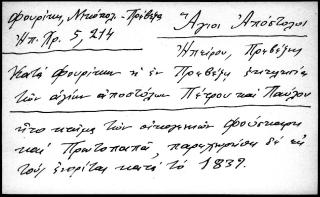 Φουρίκη, Νικόπολ. - Πρέβεζα
Ἠπ. Χρ. 5, 214
Ἅγιοι Ἀπόστολοι
Ἠπείρου, Πρεβέζης
Κατά Φουρίκην ἡ ἐν Πρεβέζῃ ἐκκλησία
τῶν ἁγίων ἀποστόλων Πέτρου καί Παύλου
ἦτο κτῆμα τῶν οἰκογενειῶν
καί Πρωτοπαπᾶ, παρεχωρήθη δέ εἰς
τούς ἐνορίτας κατά τό 1839.